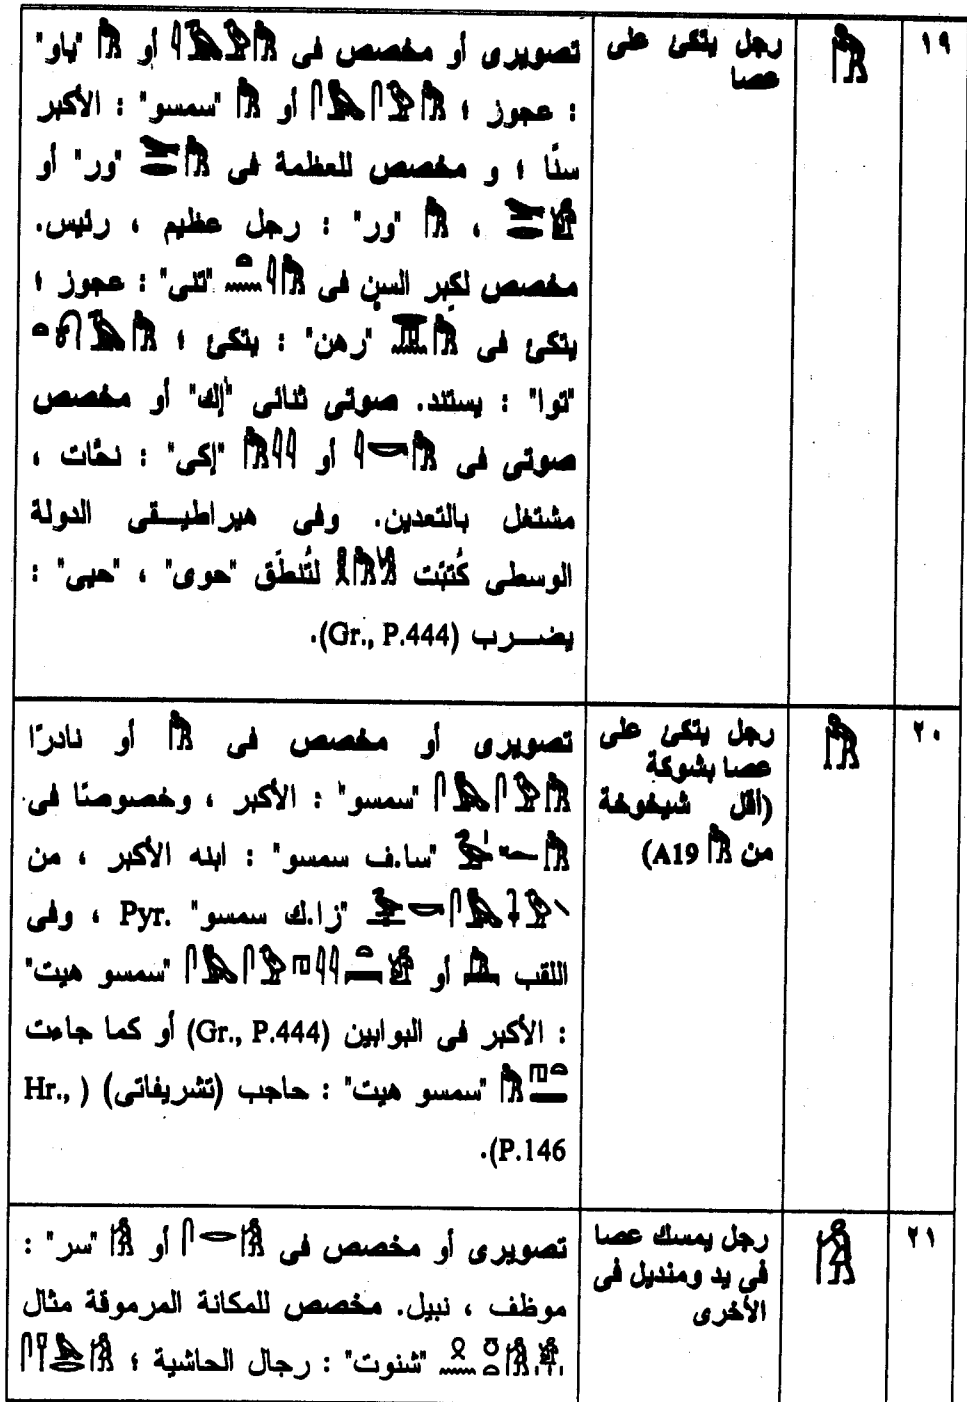 ١٩
𓀗
رجل يتكئ على
عصا
تصويرى أو مخصص فى أو 𓀗 "ياو"
: عجوز ؛ أو 𓀗 "سمسو" : الأكبر
سنًا ؛ و مخصص للعظمة فى "ور" أو
، 𓀗 "ور" : رجل عظيم ، رئيس.
مخصص لكبر السن فى "تنى" : عجوز ؛
يتكئ فى "رهن" : يتكئ ؛
"توا" : يستند. صوتى ثنائى "إك" أو مخصص
صوتى فى أو "إكى" : نحَّات ،
مشتغل بالتعدين. وفى هيراطيـــقى الدولة
الوسطى كُتبَت لتُنطَق "حوى" ، "حيى" :
يضـــرب (Gr., P.444).
٢٠
𓀘
رجل يتكئ على
عصا بشوكة
(أقل شيخوخة
من 𓀗 A19)
تصويرى أو مخصص فى 𓀘 أو نادرًا
"سمسو" : الأكبر ، وخصوصًا فى
"سا.ف سمسو" : ابنه الأكبر ، من
"زا.ك سمسو" Pyr. ، وفى
اللقب أو "سمسو هيت"
: الأكبر فى البوابين (Gr., P.444) أو كما جاءت
"سمسو هيت" : حاجب (تشريفاتى) (Hr.,
P.146).
٢١
𓀙
رجل يمسك عصا
فى يد ومنديل فى
الأخرى
تصويرى أو مخصص فى أو 𓀙 "سر" :
موظف ، نبيل. مخصص للمكانة المرموقة مثال
"شنوت" : رجال الحاشية ؛